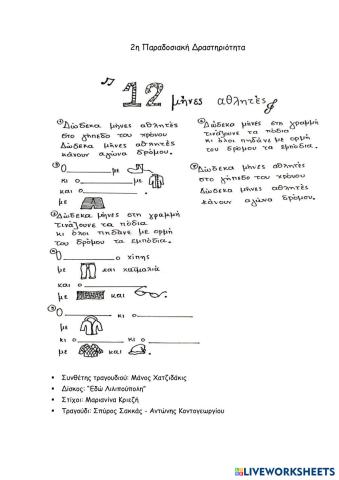 2η Παραδοσιακή Δραστηριότητα
12 μήνες αθλητές
① Δώδεκα μήνες αθλητές
στο γήπεδο του χρόνου
Δώδεκα μήνες αθλητές
κάνουν αγώνα δρόμου.
② Ο με
κι ο με
και ο
με
③ Δώδεκα μήνες στη γραμμή
τινάζουνε τα πόδια
κι όλοι πηδάνε με ορμή
του δρόμου τα εμπόδια.
④ Ο ο χίπης
με και χαϊμαλιά
και ο
με και
⑤ Ο κι ο
με κι ο
με και
⑥ Δώδεκα μήνες στη γραμμή
τινάζουνε τα πόδια
κι όλοι πηδάνε με ορμή
του δρόμου τα εμπόδια.
Δώδεκα μήνες αθλητές
στο γήπεδο του χρόνου
Δώδεκα μήνες αθλητές
κάνουν αγώνα δρόμου.
• Συνθέτης τραγουδιού: Μάνος Χατζιδάκις
• Δίσκος: "Εδώ Λιλιπούπολη"
• Στίχοι: Μαριανίνα Κριεζή
• Τραγούδι: Σπύρος Σακκάς - Αντώνης Κοντογεωργίου
LIVEWORKSHEETS